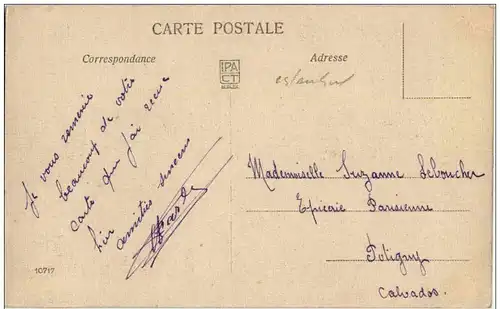 CARTE POSTALE
Correspondance
Adresse
IPA
CT
Je vous remercie
beaucoup de votre
carte que j'ai reçue
hier
amitiés sincères
Mademoiselle Suzanne Leboucher
Epicerie Parisienne
Potigny
Calvados.
10717